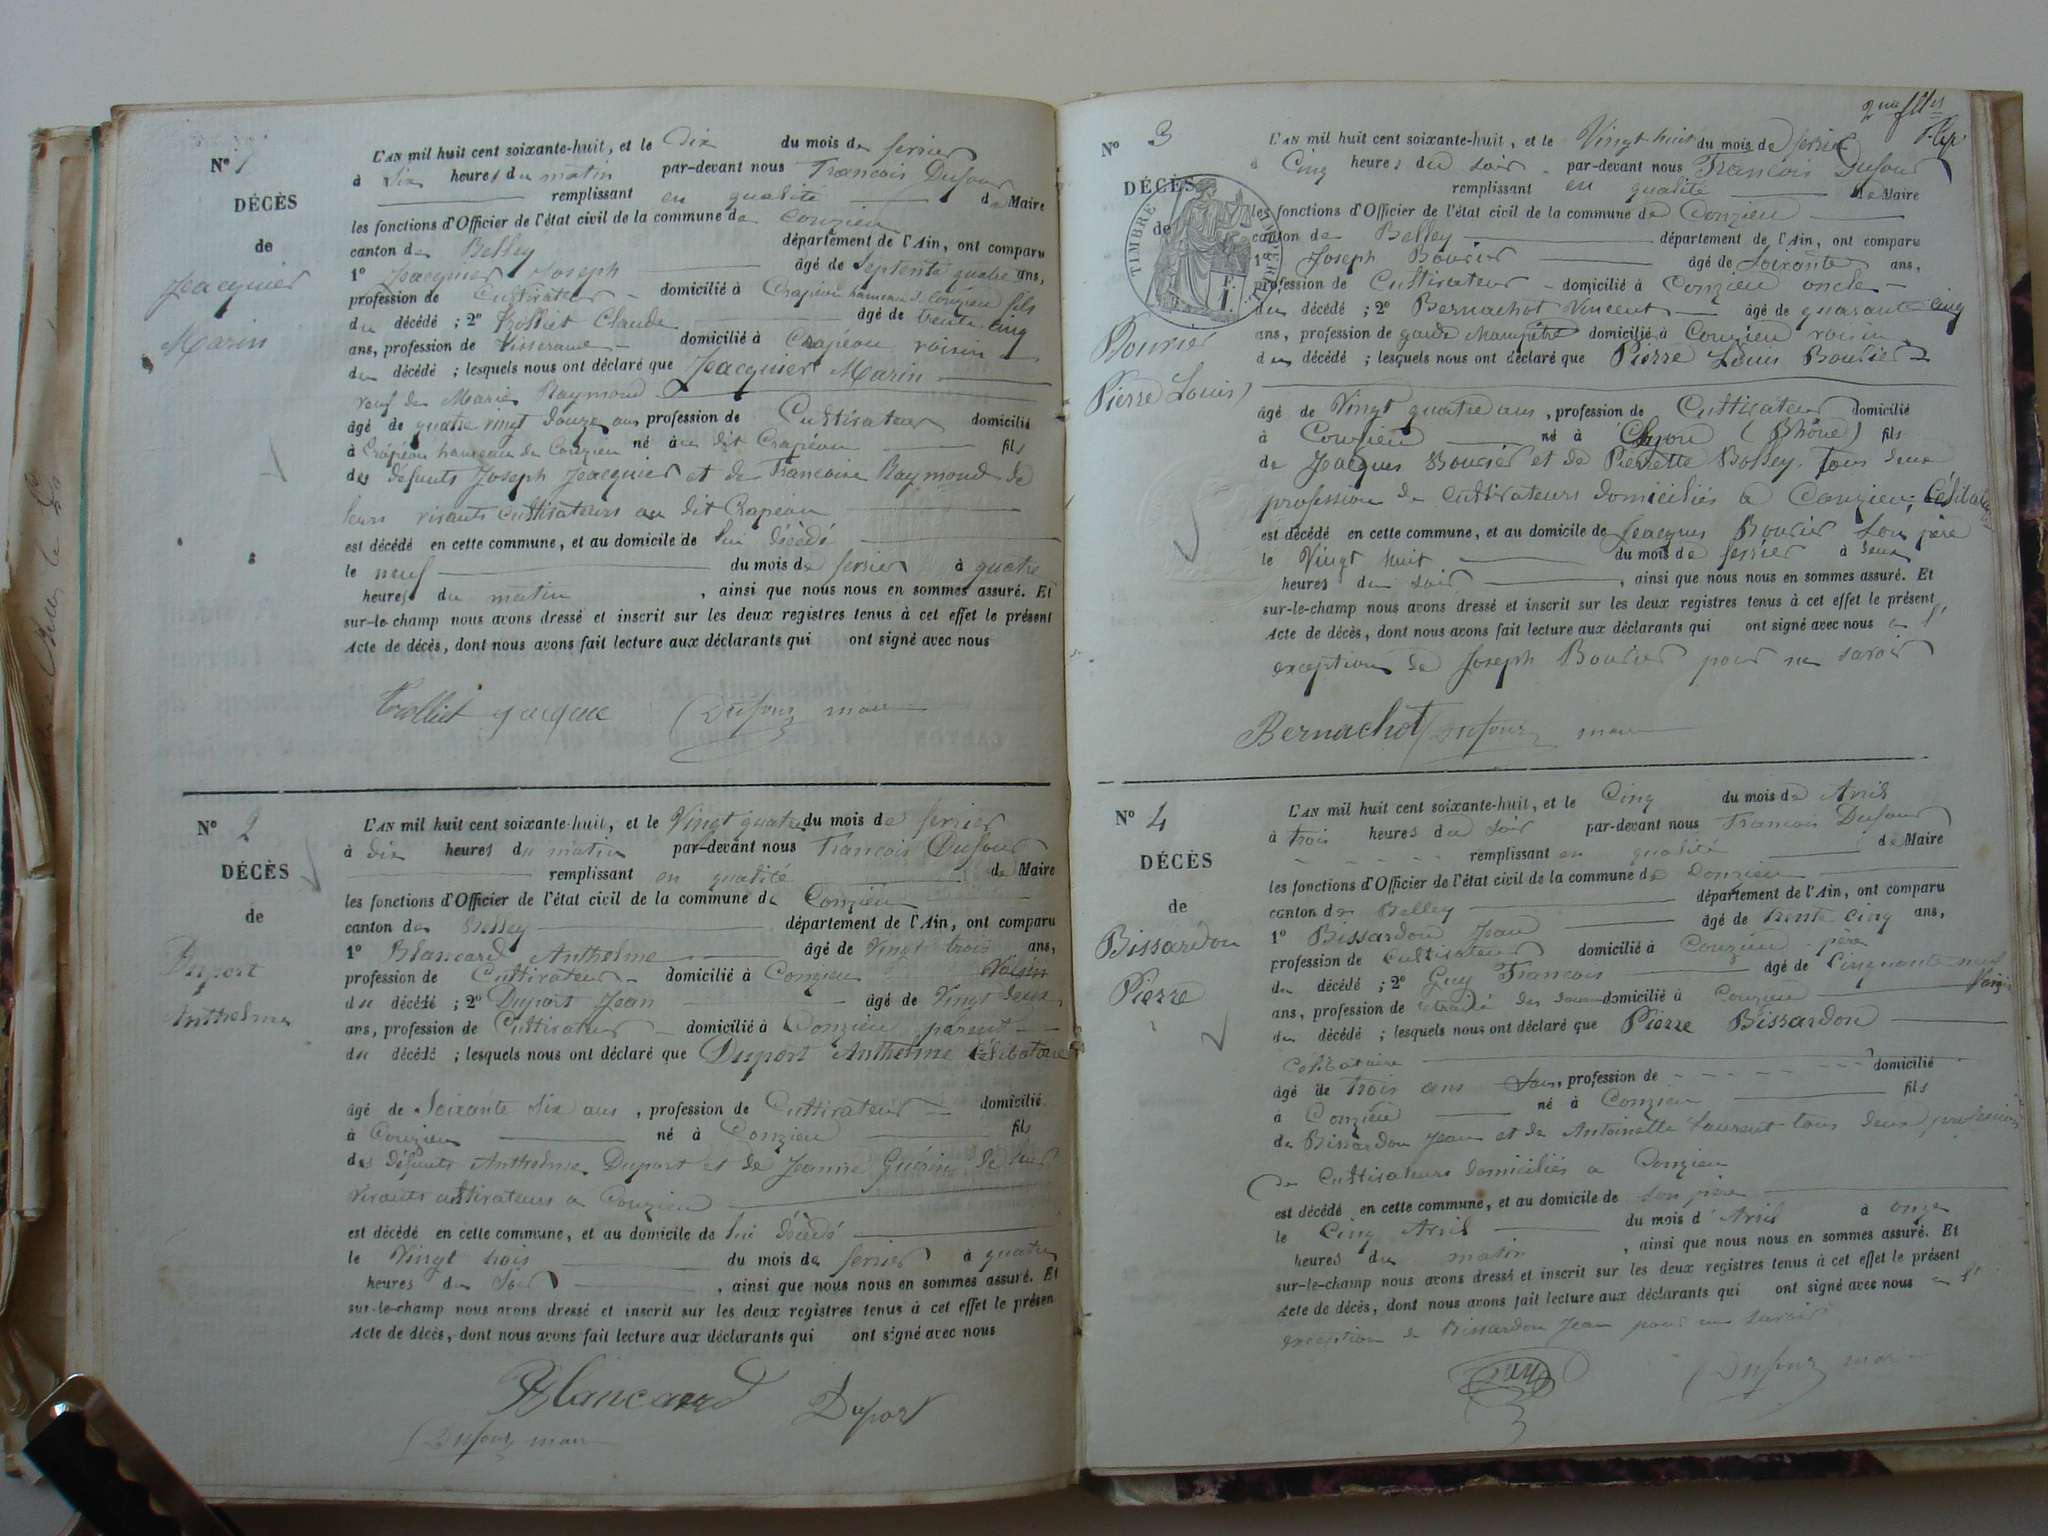 N° 1
DÉCÈS
de
Jacquier
Marin
L'AN mil huit cent soixante-huit, et le Dix du mois de fevrier
à Six heures du matin par-devant nous Francois Dufour
remplissant en qualité de Maire
les fonctions d'Officier de l'état civil de la commune de Conzieu
canton de Belley département de l'Ain, ont comparu
1° Jacquier Joseph âgé de Septente quatre ans,
profession de Cultivateur domicilié à Crapéou hameau de Conzieu fils
du décédé ; 2° Trolliet Claude âgé de trente cinq
ans, profession de Tisserand domicilié à Crapéou voisin
du décédé ; lesquels nous ont déclaré que Jacquier Marin
veuf de Marie Raymond
âgé de quatre vingt douze ans profession de Cultivateur domicilié
à Crapéou hameau de Conzieu né au dit Crapéou fils
des défunts Joseph Jacquier et de Francoise Raymond de
leurs vivants cultivateurs au dit Crapéou
est décédé en cette commune, et au domicile de lui décédé
le neuf du mois de fevrier à quatre
heures du matin , ainsi que nous nous en sommes assuré. Et
sur-le-champ nous avons dressé et inscrit sur les deux registres tenus à cet effet le présent
Acte de décès, dont nous avons fait lecture aux déclarants qui ont signé avec nous
Trolliet Dufour maire
N° 2
DÉCÈS
de
Duport
Anthelme
L'AN mil huit cent soixante-huit, et le Vingt quatre du mois de fevrier
à dix heures du matin par-devant nous Francois Dufour
remplissant en qualité de Maire
les fonctions d'Officier de l'état civil de la commune de Conzieu
canton de Belley département de l'Ain, ont comparu
1° Blancard Anthelme âgé de Vingt trois ans,
profession de Cultivateur domicilié à Conzieu Voisin
du décédé ; 2° Duport Jean âgé de Vingt deux
ans, profession de Cultivateur domicilié à Conzieu parent
du décédé ; lesquels nous ont déclaré que Duport Anthelme Célibataire
âgé de Soixante Six ans , profession de Cultivateur domicilié
à Conzieu né à Conzieu fils
des défunts Anthelme Duport et de Jeanne Guérin de leur
vivants cultivateurs a Conzieu
est décédé en cette commune, et au domicile de lui décédé
le Vingt trois du mois de fevrier à quatre
heures du Soir , ainsi que nous nous en sommes assuré. Et
sur-le-champ nous avons dressé et inscrit sur les deux registres tenus à cet effet le présen
Acte de décès, dont nous avons fait lecture aux déclarants qui ont signé avec nous
Blancard Duport
Dufour maire
N° 3
DÉCÈS
de
TIMBRE
Bouvier
Pierre Louis
L'AN mil huit cent soixante-huit, et le Vingt huit du mois de fevrier
à Cinq heures du soir par-devant nous Francois Dufour
remplissant en qualité de Maire
les fonctions d'Officier de l'état civil de la commune de Conzieu
canton de Belley département de l'Ain, ont comparu
1° Joseph Bouvier âgé de Soixante ans,
profession de Cultivateur domicilié à Conzieu oncle
du décédé ; 2° Bernachot Vincent âgé de quarante cinq
ans, profession de garde champêtre domicilié à Conzieu voisin
du décédé ; lesquels nous ont déclaré que Pierre Louis Bouvier
âgé de Vingt quatre ans , profession de Cultivateur domicilié
à Conzieu né à Lyon (Rhône) fils
de Jacques Bouvier et de Pierrette Bolley, tous deux
profession de cultivateurs domiciliés a Conzieu, Célibataire
est décédé en cette commune, et au domicile de Jacques Bouvier Son père
le Vingt huit du mois de fevrier à deux
heures du soir , ainsi que nous nous en sommes assuré. Et
sur-le-champ nous avons dressé et inscrit sur les deux registres tenus à cet effet le présent
Acte de décès, dont nous avons fait lecture aux déclarants qui ont signé avec nous a l'
exception de Joseph Bouvier pour ne savoir
Bernachot Dufour maire
N° 4
DÉCÈS
de
Bissardon
Pierre
L'AN mil huit cent soixante-huit, et le Cinq du mois de Avril
à trois heures du soir par-devant nous Francois Dufour
remplissant en qualité de Maire
les fonctions d'Officier de l'état civil de la commune de Conzieu
canton de Belley département de l'Ain, ont comparu
1° Bissardon Jean âgé de trente cinq ans,
profession de Cultivateur domicilié à Conzieu père
du décédé ; 2° Guy Francois âgé de Cinquante neuf
ans, profession de retraité des domicilié à Conzieu Voisin
du décédé ; lesquels nous ont déclaré que Pierre Bissardon
Célibataire
âgé de trois ans , profession de domicilié
à Conzieu né à Conzieu fils
de Bissardon Jean et de Antoinette Laurent tous deux profession
de Cultivateurs domiciliés a Conzieu
est décédé en cette commune, et au domicile de son père
le Cinq Avril du mois d'Avril à onze
heures du matin , ainsi que nous nous en sommes assuré. Et
sur-le-champ nous avons dressé et inscrit sur les deux registres tenus à cet effet le présent
Acte de décès, dont nous avons fait lecture aux déclarants qui ont signé avec nous a l'
exception de Bissardon Jean pour ne savoir
Dufour maire